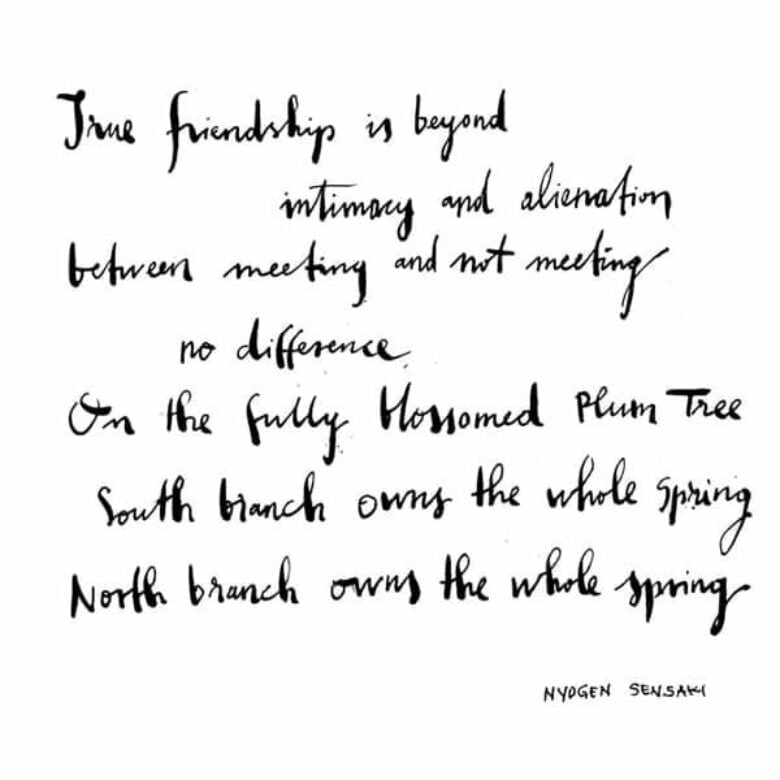 True friendship is beyond
intimacy and alienation
between meeting and not meeting
no difference.
On the fully blossomed Plum Tree
South branch owns the whole spring
North branch owns the whole spring
NYOGEN SENSAKI